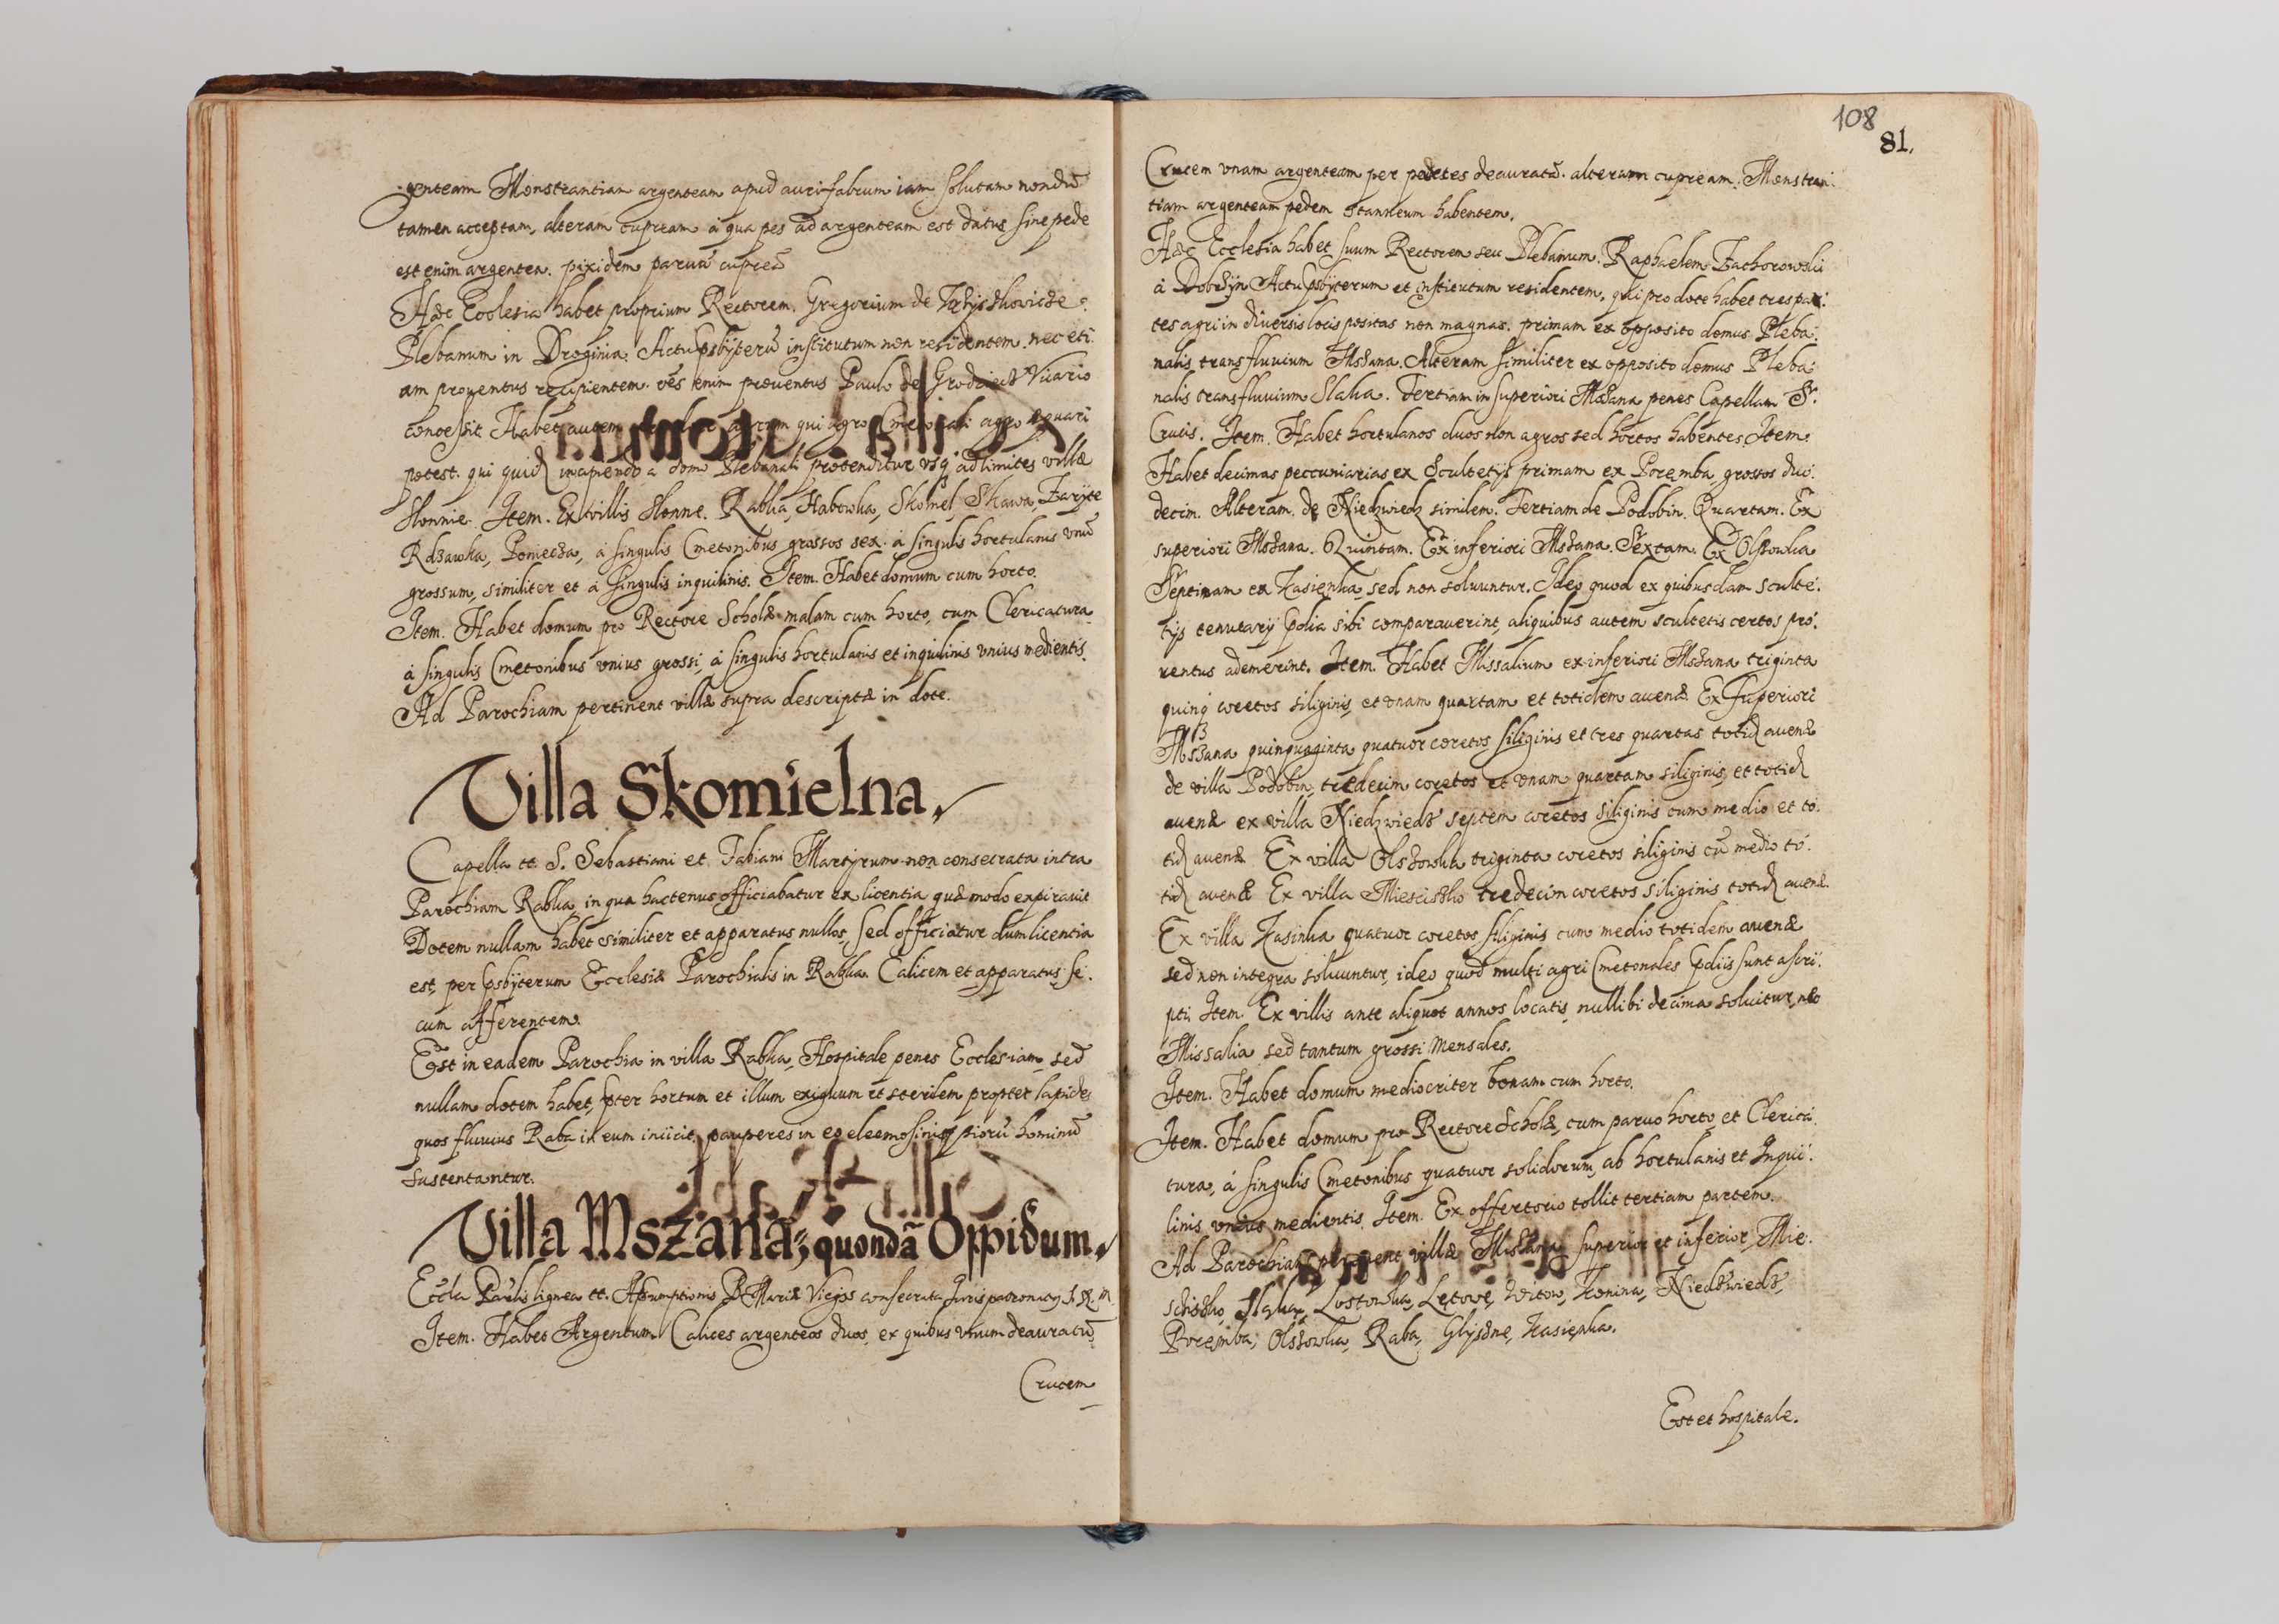 genteam Monstrantiam argenteam apud aurifabrum iam solutam nondū
tamen acceptam, alteram cupream à qua pes ad argenteam est datus sine pede
est enim argentea. pixidem paruā cupreā
Hæc Ecclesia habet proprium Rectorem. Gregorium de
Plebanum in Droginia. Actu Psbÿterū institutum non residentem. nec eti:
am prouentus recipientem. oēs enim prouentus Paulo de Grodziecz Vicario
concessit. Habet autem agrum qui agro Cmetonali æquari
potest. qui quidē incipiendo a domo Plebanali protenditur vsq ad limites villæ
Slonnie. Item. Ex villis Slonne. Rabka, Habowka, Skomel, Skawa, Zaryte
Rdzawka, Poniecza, à singulis Cmetonibus grossos sex. à singulis hortulanis vnū
grossum, similiter et à singulis inquilinis. Item. Habet domum cum horto.
Item. Habet domum pro Rectore Scholæ malam cum horto, cum Clericatura
à singulis Cmetonibus vnius grossi, à singulis hortulanis et inquilinis vnius medientis.
Ad Parochiam pertinent villæ supra descriptæ in dote.
Villa Skomielna.
Capella tt. S. Sebastiani et Fabiani Martyrum non consecrata intra
Parochiam Rabka in qua hactenus officiabatur ex licentia quæ modo expirauit
Dotem nullam habet similiter et apparatus nullos, sed officiatur dum licentia
est, per Psbÿterum Ecclesiæ Parochialis in Rabka. Calicem et apparatus se:
cum afferentem.
Est in eadem Parochia in villa Rabka, Hospitale penes Ecclesiam, sed
nullam dotem habet, pter hortum et illum exiguum et sterilem propter lapides
quos fluuius Raba in eum iniicit, pauperes in eo eleemosinis piorū hominū
sustentantur.
Villa Mszana, quondā Oppidum.
Eccla Parlis lignea tt. Assumptionis B Mariæ Virgis consecrata Iuris patronatq S. R. M.
Item. Habet Argentum. Calices argenteos duos, ex quibus vnum deauratū,
Crucem
108
81.
Crucem vnam argenteam per pedetes deauratā. alteram cupream. Monstran:
tiam argenteam pedem stanneum habentem.
Hæc Ecclesia habet suum Rectorem seu Plebanum. Raphaelem Zachorowski
à Dobczyn Actu Psbyterum et institutum residentem, qui pro dote habet tres par:
tes agri in diuersis locis positas non magnas. primam ex opposito domus Pleba:
nalis trans fluuium Mszana. Alteram similiter ex opposito domus Pleba:
nalis trans fluuium Slaka. Tertiam in superiori Mszana penes Capellam S.
Crucis. Item. Habet hortulanos duos non agros sed hortos habentes Item.
Habet decimas peccuniarias ex Scultetys primam ex Poremba grossos duo:
decim. Alteram. de Niedzwiedz similem. Tertiam de Podobin. Quartam. Ex
superiori Mszana. Quintam. Ex inferiori Mszana. Sextam. Ex Olszowka
Septimam ex Kasienka, sed non soluuntur. Ideo quod ex quibusdam sculte:
tijs tenutarÿ Pdia sibi comparauerint, aliquibus autem scultetis certos pro:
uentus ademerint. Item. Habet Missalium ex inferiori Mszana triginta
quinq coretos siliginis, et vnam quartam et totidem auenæ. Ex superiori
Mszana quinquaginta quatuor coretos siliginis et tres quartas totid auenæ
de villa Podobin, tredecim coretos et vnam quartam siliginis, et totid
auenæ ex villa Niedzwiedz septem coretos siliginis cum medio et to:
tid auenæ. Ex villa Olszowka triginta coretos siliginis cū medio to:
tid auenæ Ex villa Miescisko tredecim coretos siliginis totid auenæ.
Ex villa Kasinka quatuor coretos siliginis cum medio totidem auenæ
sed non integra soluuntur, ideo quod multi agri Cmetonales Pdiis sunt ascri:
pti. Item. Ex villis ante aliquot annos locatis, nullibi decima soluitur, nec
Missalia sed tantum grossi Mensales.
Item. Habet domum mediocriter bonam cum horto.
Item. Habet domum pro Rectore Scholæ, cum paruo horto, et Clerica:
tura, à singulis Cmetonibus quatuor solidorum, ab hortulanis et Inqui:
linis vnius medientis. Item. Ex offertorio tollit tertiam partem.
Ad Parochiam pertinent villæ Mszana superior et inferior, Mie:
scisko, Slaka, Lostowka, Lętowe, Witow, Konina, Niedzwiedz,
Poremba, Olszowka, Raba, Glysne, Kasienka.
Est et hospitale.